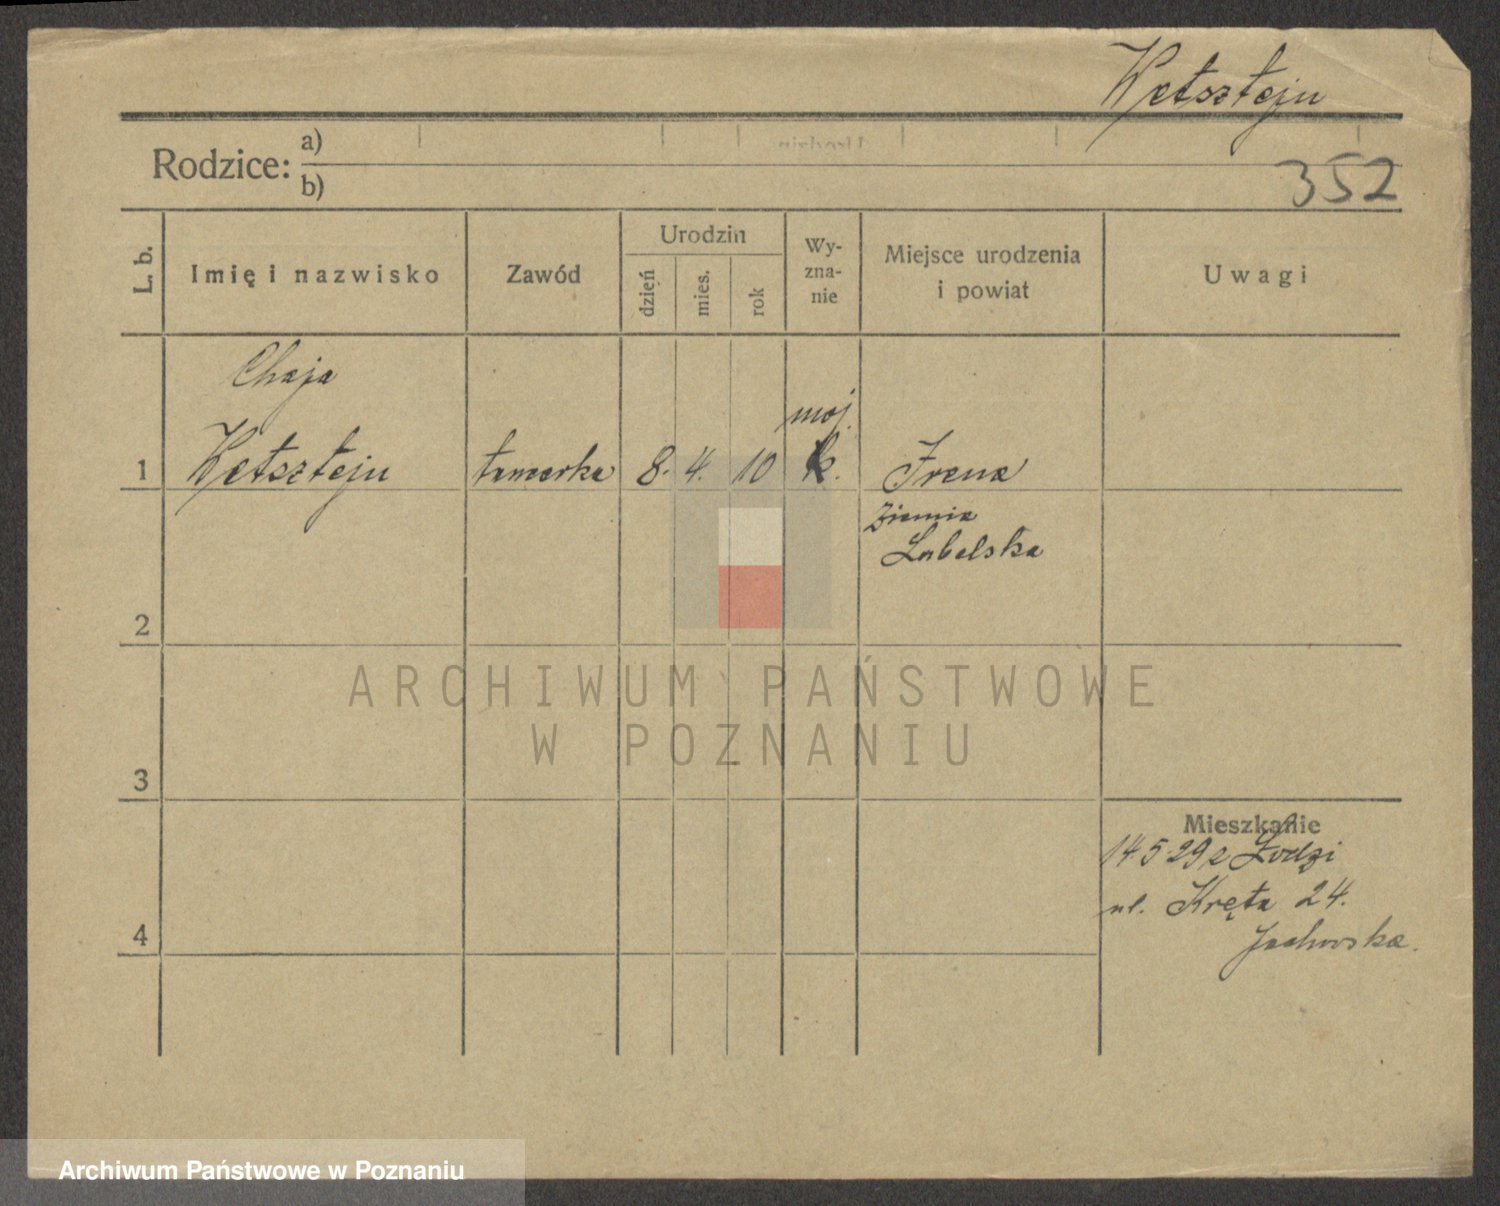 Wetsztejn
Rodzice:
a)
b)
352
L. b.
Imię i nazwisko
Zawód
Urodzin
dzień
mies.
rok
Wy-
zna-
nie
Miejsce urodzenia
i powiat
Uwagi
Chaja
moj.
1 Wetsztejn 8. 4. 10 k. Irena
Ziemia
Lubelska
2
3
4
Mieszkanie
14 5 29 z Łodzi
ul. Kręta 24.
ARCHIWUM PAŃSTWOWE
W POZNANIU
Archiwum Państwowe w Poznaniu